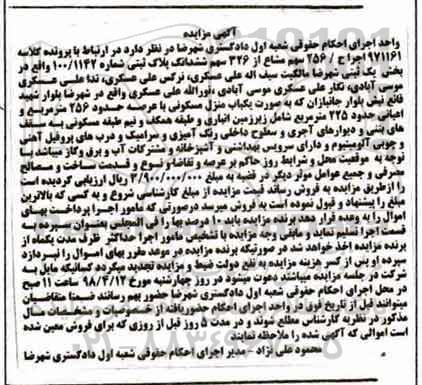 آگهی مزایده
واحد اجرای احکام حقوقی شعبه اول دادگستری شهرضا در نظر دارد در ارتباط با پرونده کلاسه
۹۷۱۱۶۱اجرا ج / ۲۵۶ سهم مشاع از ۳۲۶ سهم ششدانگ پلاک ثبتی شماره ۱۰۰/۱۱۴۲ واقع در
بخش یک ثبتی شهرضا مالکیت سیف اله علی عسکری، نرگس علی عسکری، ندا علی عسکری
موسی آبادی، نگار علی عسکری موسی آبادی ،نورالله علی عسکری واقع در شهرضا بلوار شهید
قانع نبش بلوار جانبازان که به صورت یکباب منزل مسکونی با عرصه حدود ۲۵۶ مترمربع و
اعیانی حدود ۲۲۵ مترمربع شامل زیرزمین انباری و طبقه همکف و نیم طبقه مسکونی به سقف
های بتنی و دیوارهای آجری و سطوح داخلی رنگ آمیزی و سرامیک و درب های پروفیل آهنی
و چوبی آلومینیوم و دارای سرویس بهداشتی و آشپزخانه و مشترکات آب و برق وگاز میباشد با
توجه به موقعیت محل و شرایط روز حاکم بر عرصه و تقاضا و نوع و قدمت ساخت و مصالح
مصرفی و جمیع عوامل موثر دیگر در قضیه به مبلغ ۳/۹۰۰/۰۰۰/۰۰۰ ریال ارزیابی گردیده است
را ازطریق مزایده به فروش رساند قیمت مزایده از مبلغ کارشناسی شروع و به کسی که بالاترین
مبلغ را پیشنهاد و قبول نموده است به فروش میرسد درصورتی که مامور اجرا پرداخت بهای
اموال را به وعده قرار دهد برنده مزایده باید ۱۰ درصد بها را فی المجلس بعنوان سپرده به
قسمت اجرا تسلیم نماید و مابقی وجه مزایده با تشخیص مامور اجرا حداکثر ظرف مدت یکماه از
برنده مزایده اخذ خواهد شد در صورتیکه برنده مزایده در موعد مقرر بهای اموال را نپردازد
سپرده او پس از کسر هزینه مزایده به نفع دولت ضبط و مزایده تجدید میگردد کسانیکه مایل به
شرکت در جلسه مزایده میباشند دعوت میشود در روز چهارشنبه مورخ ۹۸/۴/۱۲ ساعت ۱۱ صبح
در محل اجرای احکام حقوقی شعبه اول دادگستری شهرضا حضور بهم رسانند ضمنا متقاضیان
میتوانند قبل از تاریخ فوق در واحد اجرای احکام حضوریافته از خصوصیات و مشخصات مال
مذکور در نظریه کارشناس مطلع شوند و در مدت ۵ روز قبل از روزی که برای فروش معین شده
است اموالی که آگهی شده را ملاحظه نمایند
محمود علی نژاد - مدیر اجرای احکام حقوقی شعبه اول دادگستری شهرضا